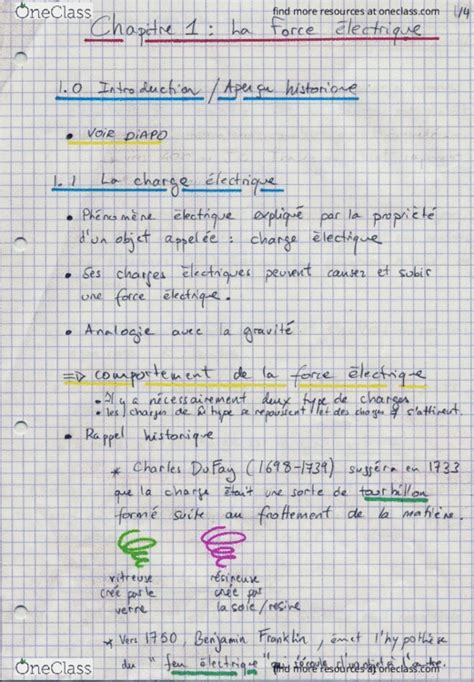 OneClass
find more resources at oneclass.com
1/4
Chapitre 1 : La Force électrique
1.0 Introduction / Aperçu historique
• VOIR DIAPO
1.1 La charge électrique
• Phénomène électrique expliqué par la propriété
d'un objet appelée : charge électrique
• Ses charges électriques peuvent causer et subir
une force électrique.
• Analogie avec la gravité
=> comportement de la force électrique
• Il y a nécessairement deux type de charges
• les charges de m̂ type se repoussent et des charges ≠ s'attirent.
• Rappel historique
* Charles DuFay (1698-1739) suggéra en 1733
que la charge était une sorte de tourbillon
formé suite au frottement de la matière.
vitreuse résineuse
crée par le crée par
verre la soie / résine
* Vers 1750, Benjamin Franklin, émet l'hypothèse
du "feu électrique" qui s'écoule d'un objet à l'autre.
OneClass
find more resources at oneclass.com